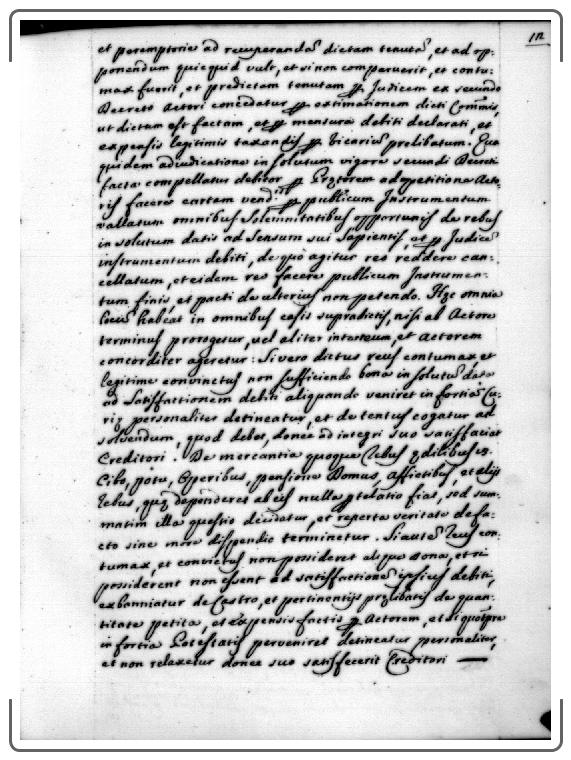 112
et peremptorie ad recuperandã dictam tenutã, et ad op-
ponendum quicquid vult, et si non comperuerit, et contu-
max fuerit, et predictam tenutam ꝑ Judicem ex secundo
Decreto Actori concedatur ꝑ extimationem dicti Comũis,
ut dictum est factam, et ꝑ mensura debiti declarati, et
expensis legitimis taxandis ꝑ Vicariũ prelibatum. Qua
quidem adiudicatione in solutum vigore secundi Decreti
facta compellatur debitor ꝑ Prętorem ad petitione Acto-
ris facere cartam vend.nis ꝑ publicum Instrumentum
vallatum omnibus Solemnitatibus opportunis de rebus
in solutum datis ad Sensum sui Sapientis, et ꝑ Judicẽ
instrumentum debiti, de quo agitur reo reddere can-
cellatum, et eidem reo facere publicum Instrumen-
tum finis, et pacti de ulterius non petendo. Hęc omnia
locũ habeat in omnibus casis supradictis, nisi ab Actore
terminus prorogetur, vel aliter inter eum, et Actorem
concorditer ageretur: Si vero dictus reus contumax, et
legitime convinctus non sufficiendo bona in solutũ data
ad Satisfactionem debiti aliquando veniret in fortiã Cu-
rię personaliter detineatur, et detentus cogatur ad
solvendum, quod debet, donec ad integri suo satisfaciat
Creditori. De mercantia quoque
Cibo, potu, Operibus, pensione Domus, affictibus, et alijs
rebus, quę dependeret ab eis nulla fiat, sed sum-
matim illa questio decidatur, et reperta veritate de fa-
cto sine more dispendio terminetur. Si autẽ reus con-
tumax, et convictus non possideret aliqua bona, et si
possiderent non essent ad satisfactionẽ ipsius debiti,
exbanniatur de Castro, et pertinentijs pręlibatis de quan-
titate petita, et expensis factis ꝑ Actorem, et si
in fortia Potestatis perveniret detineatur personaliter,
et non relaxetur donec suo satisfecerit Creditori —